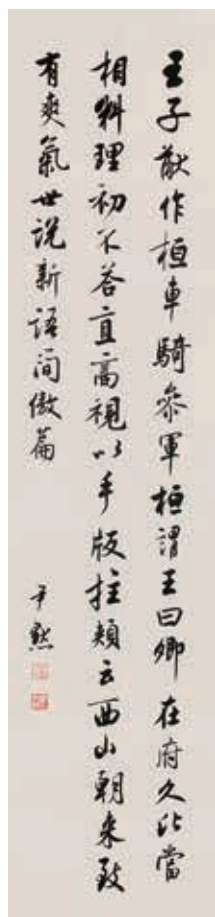 王子猷作桓車騎參軍桓謂王曰卿在府久比當
相料理初不答直高視以手版拄頰云西山朝来致
有爽氣世說新語簡傲篇
尹默